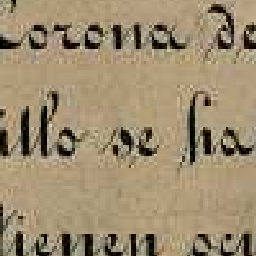 Corona de
illo se ha
tienen ocu